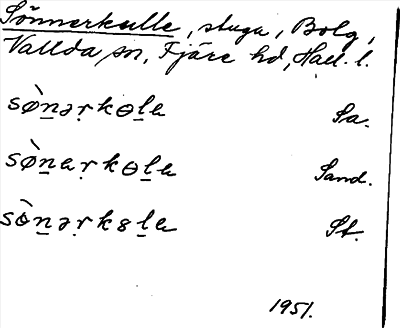 Sönnerkulle, stuga, Bolg,
Vallda sn, Fjäre hd, Hall. l.
sø̀n̲ər̥kɵl̲a Sa.
sø̀n̲ar̥kɵl̲a Sand.
sɵ̀n̲ər̥k8l̲a St.
1951.